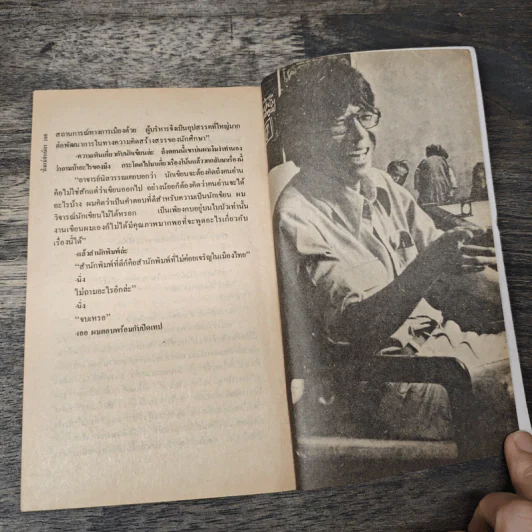 สถานการณ์ทางการเมืองด้วย ผู้บริหารจึงเป็นอุปสรรคที่ใหญ่มาก
ต่อพัฒนาการในทางความคิดสร้างสรรของนักศึกษา"
-ความเห็นเกี่ยวกับนักเขียนล่ะ
"อาจารย์นิสารรณเคยบอกว่า นักเขียนจะต้องคิดถึงคนอ่าน
คือไม่ใช่สักแต่ว่าเขียนออกไป อย่างน้อยก็ต้องคิดว่าคนอ่านจะได้
อะไรบ้าง ผมคิดว่าเป็นคำตอบที่ดีสำหรับความเป็นนักเขียน ผม
วิจารณ์นักเขียนไม่ได้หรอก เป็นเพียงกบอยู่บนใบบัวเท่านั้น
งานเขียนผมเองก็ไม่ได้มีคุณภาพมากพอที่จะพูดอะไรเกี่ยวกับ
เรื่องนี้ได้"
-แล้วสำนักพิมพ์ล่ะ
"สำนักพิมพ์ที่ดีก็คือสำนักพิมพ์ที่ไม่ค่อยเจริญในเมืองไทย"
-นิ่ง
ไม่ถามอะไรอีกล่ะ"
-นิ่ง
"จบเหรอ"
-เออ ผมตอบพร้อมกับปิดเทป